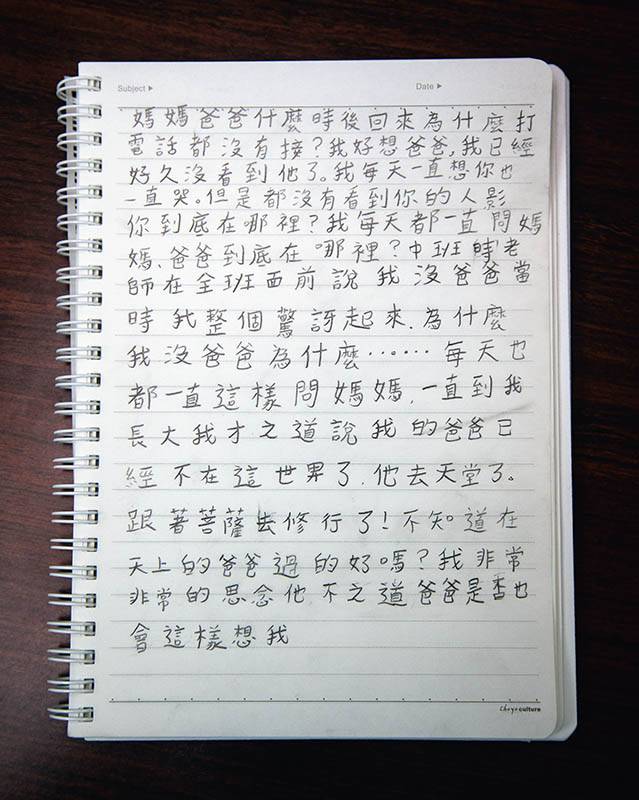 Subject ▶ Date ▶
媽媽爸爸什麼時後回來為什麼打
電話都沒有接？我好想爸爸，我已經
好久沒看到他了。我每天一直想你也
一直哭。但是都沒有看到你的人影
你到底在哪裡？我每天都一直問媽
媽、爸爸到底在哪裡？中班時老
師在全班面前說我沒爸爸當
時我整個驚訝起來，為什麼
我沒爸爸為什麼……每天也
都一直這樣問媽媽，一直到我
長大我才之道說我的爸爸已
經不在這世界了，他去天堂了。
跟著菩薩去修行了！不知道在
天上的爸爸過的好嗎？我非常
非常的思念他不之道爸爸是否也
會這樣想我